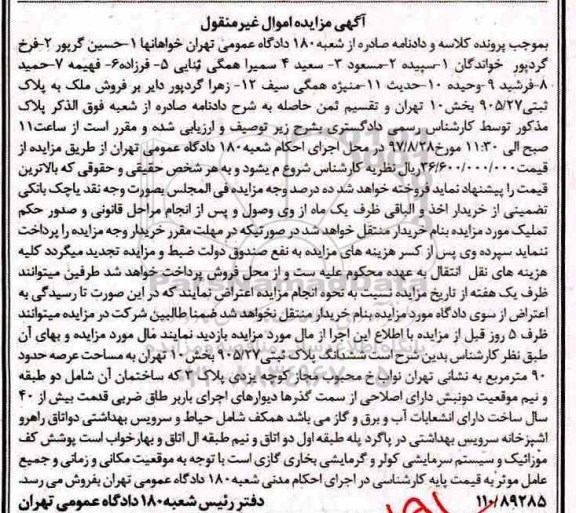 آگهی مزایده اموال غیرمنقول
بموجب پرونده کلاسه و دادنامه صادره از شعبه ۱۸۰ دادگاه عمومی تهران خواهانها ۱-حسین گرپور ۲-فرخ
گردپور خواندگان ۱-سپیده ۲-مسعود ۳- سعید ۴ سمیرا همگی ثنایی ۵- فرزاده۶- فهیمه ۷-حمید
۸-فرشید ۹-وحیده ۱۰-حدیث ۱۱-منیژه همگی سیف ۱۲- زهرا گردپور دایر بر فروش ملک به پلاک
ثبتی۹۰۵/۲۷ بخش۱۰ تهران و تقسیم ثمن حاصله به شرح دادنامه صادره از شعبه فوق الذکر پلاک
مذکور توسط کارشناس رسمی دادگستری بشرح زیر توصیف و ارزیابی شده و مقرر است از ساعت۱۱
صبح الی ۱۱:۳۰ مورخ۹۷/۸/۲۸ در محل اجرای احکام شعبه۱۸۰ دادگاه عمومی تهران از طریق مزایده از
قیمت۳۶/۶۰۰/۰۰۰/۰۰۰ریال نظریه کارشناس شروع م یشود و به هر شخص حقیقی و حقوقی که بالاترین
قیمت را پیشنهاد نماید فروخته خواهد شد ده درصد وجه مزایده فی المجلس بصورت وجه نقد یاچک بانکی
تضمینی از خریدار اخذ و الباقی ظرف یک ماه از وی وصول و پس از انجام مراحل قانونی و صدور حکم
تملیک مورد مزایده بنام خریدار منتقل خواهد شد در صورتیکه در مهلت مقرر خریدار وجه مزایده را پرداخت
ننماید سپرده وی پس از کسر هزینه های مزایده به نفع صندوق دولت ضبط و مزایده تجدید میگردد کلیه
هزینه های نقل انتقال به عهده محکوم علیه ست و از محل فروش پرداخت خواهد شد طرفین میتوانند
ظرف یک هفته از تاریخ مزایده نسبت به نحوه انجام مزایده اعتراض نمایند که در این صورت تا رسیدگی به
اعتراض از سوی دادگاه مورد مزایده بنام خریدار منتقل نخواهد شد ضمنا طالبین شرکت در مزایده میتوانند
ظرف ۵ روز قبل از مزایده با اطلاع این اجرا از مال مورد مزایده بازدید نمایند مال مورد مزایده و بهای آن
طبق نظر کارشناس بدین شرح است ششدانگ پلاک ثبتی۹۰۵/۲۷ بخش۱۰ تهران به مساحت عرصه حدود
۹۰ مترمربع به نشانی تهران نواب خ محبوب مجاز کوچه یزدی پلاک۲ که ساختمان آن شامل دو طبقه
و نیم موقعیت دونبش دارای اصلاحی از سمت گذرها دیوارهای اجرای باربر طاق ضربی قدمت بیش از ۴۰
سال ساخت دارای انشعابات آب و برق و گاز می باشد همکف شامل حیاط و سرویس بهداشتی دواتاق راهرو
اشپزخانه سرویس بهداشتی در پاگرد پله طبقه اول دو اتاق و نیم طبقه ال اتاق و بهارخواب است پوشش کف
موزائیک و سیستم سرمایشی کولر و گرمایشی بخاری گازی است با توجه به موقعیت مکانی و زمانی و جمیع
عامل موثر به قیمت پایه کارشناسی در اجرای احکام مدنی شعبه۱۸۰ دادگاه عمومی تهران بفروش می رسد.
۱۱۰/۸۹۲۸۵ دفتر رئیس شعبه ۱۸۰ دادگاه عمومی تهران